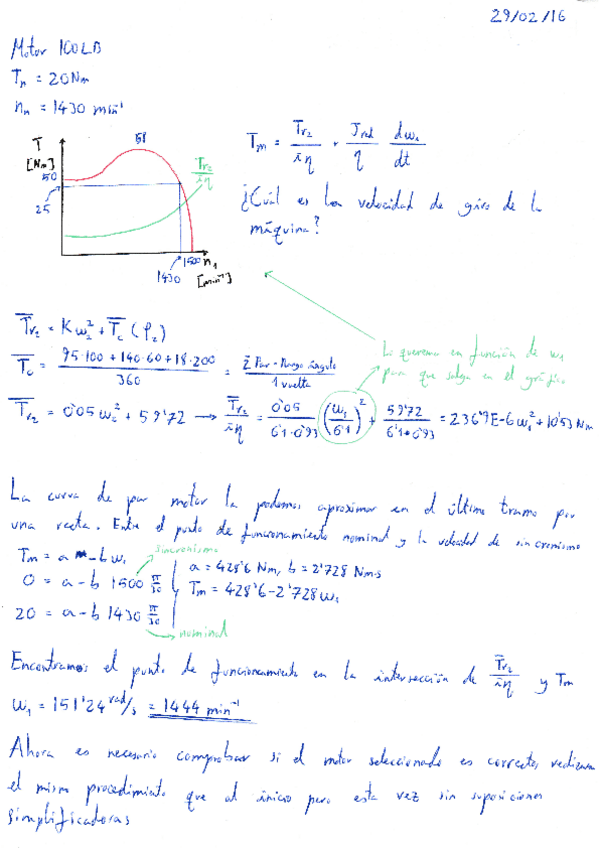 29/02/16
Motor 100LB
Tn = 20 Nm
nn = 1430 min⁻¹
T
[Nm]
58
50
25
Tr2/iη
1500 n1
1430 [min⁻¹]
Tm = Tr2/iη + Jred/η dω1/dt
¿Cuál es la velocidad de giro de la
máquina?
Tr2 = Kω2² + Tc (φ2)
Tc = 95·100 + 140·60 + 18·200 / 360 = Σ Par - Rango ángulo / 1 vuelta
Lo queremos en función de ω1
para que salga en el gráfico
Tr2 = 0'05 ω2² + 59'72 → Tr2/iη = 0'05/6'1·0'93 (ω1/6'1)² + 59'72/6'1·0'93 = 236'9E-6 ω1² + 10'53 Nm
La curva de par motor la podemos aproximar en el último tramo por
una recta. Entre el punto de funcionamiento nominal y la velocidad de sincronismo
Tm = a - bω1
sincronismo
0 = a - b 1500 π/30
a = 428'6 Nm, b = 2'728 Nm·s
Tm = 428'6 - 2'728 ω1
20 = a - b 1430 π/30
nominal
Encontramos el punto de funcionamiento en la intersección de Tr2/iη y Tm
ω1 = 151'24 rad/s = 1444 min⁻¹
Ahora es necesario comprobar si el motor seleccionado es correcto,
el mismo procedimiento que al inicio pero esta vez sin suposiciones
simplificadoras